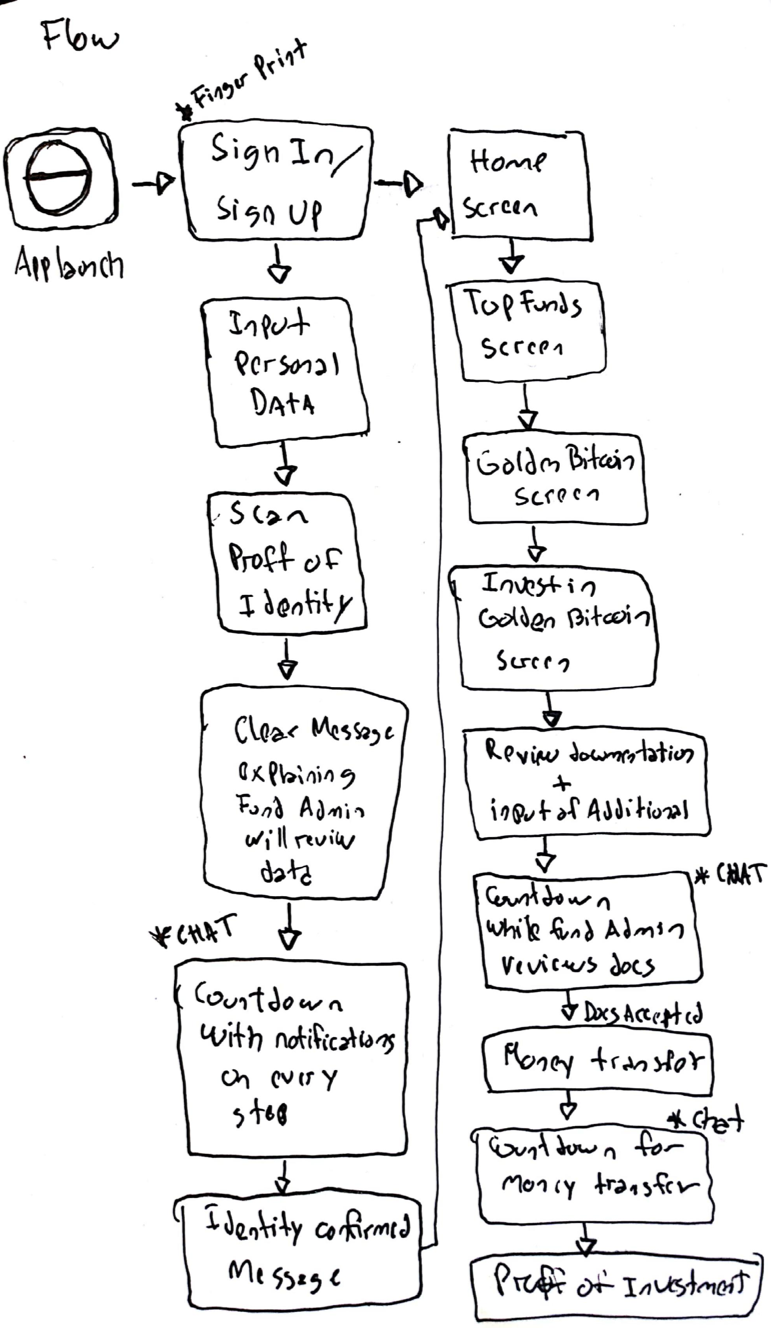 Flow
* Finger Print
Sign In/
Sign UP
App launch
Input
Personal
DATA
Scan
Proff of
Identity
Clear Message
explaining
Fund Admin
will review
data
* CHAT
Countdown
with notifications
on every
step
Identity confirmed
Message
Home
screen
Top Funds
screen
Golden Bitcoin
screen
Invest in
Golden Bitcoin
screen
Review documentation
+
input of Additional
* CHAT
Countdown
while fund Admin
reviews docs
Docs Accepted
Money transfer
* Chat
Countdown for
Money transfer
Proff of Investment